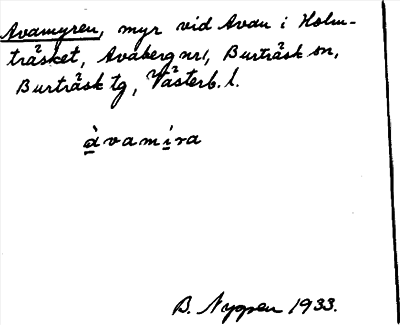 Avamyren, myr vid Avan i Holm-
träsket, Avaberg nr 1, Burträsk sn,
Burträsk tg, Västerb. l.
àvamira
B. Nygren 1933.